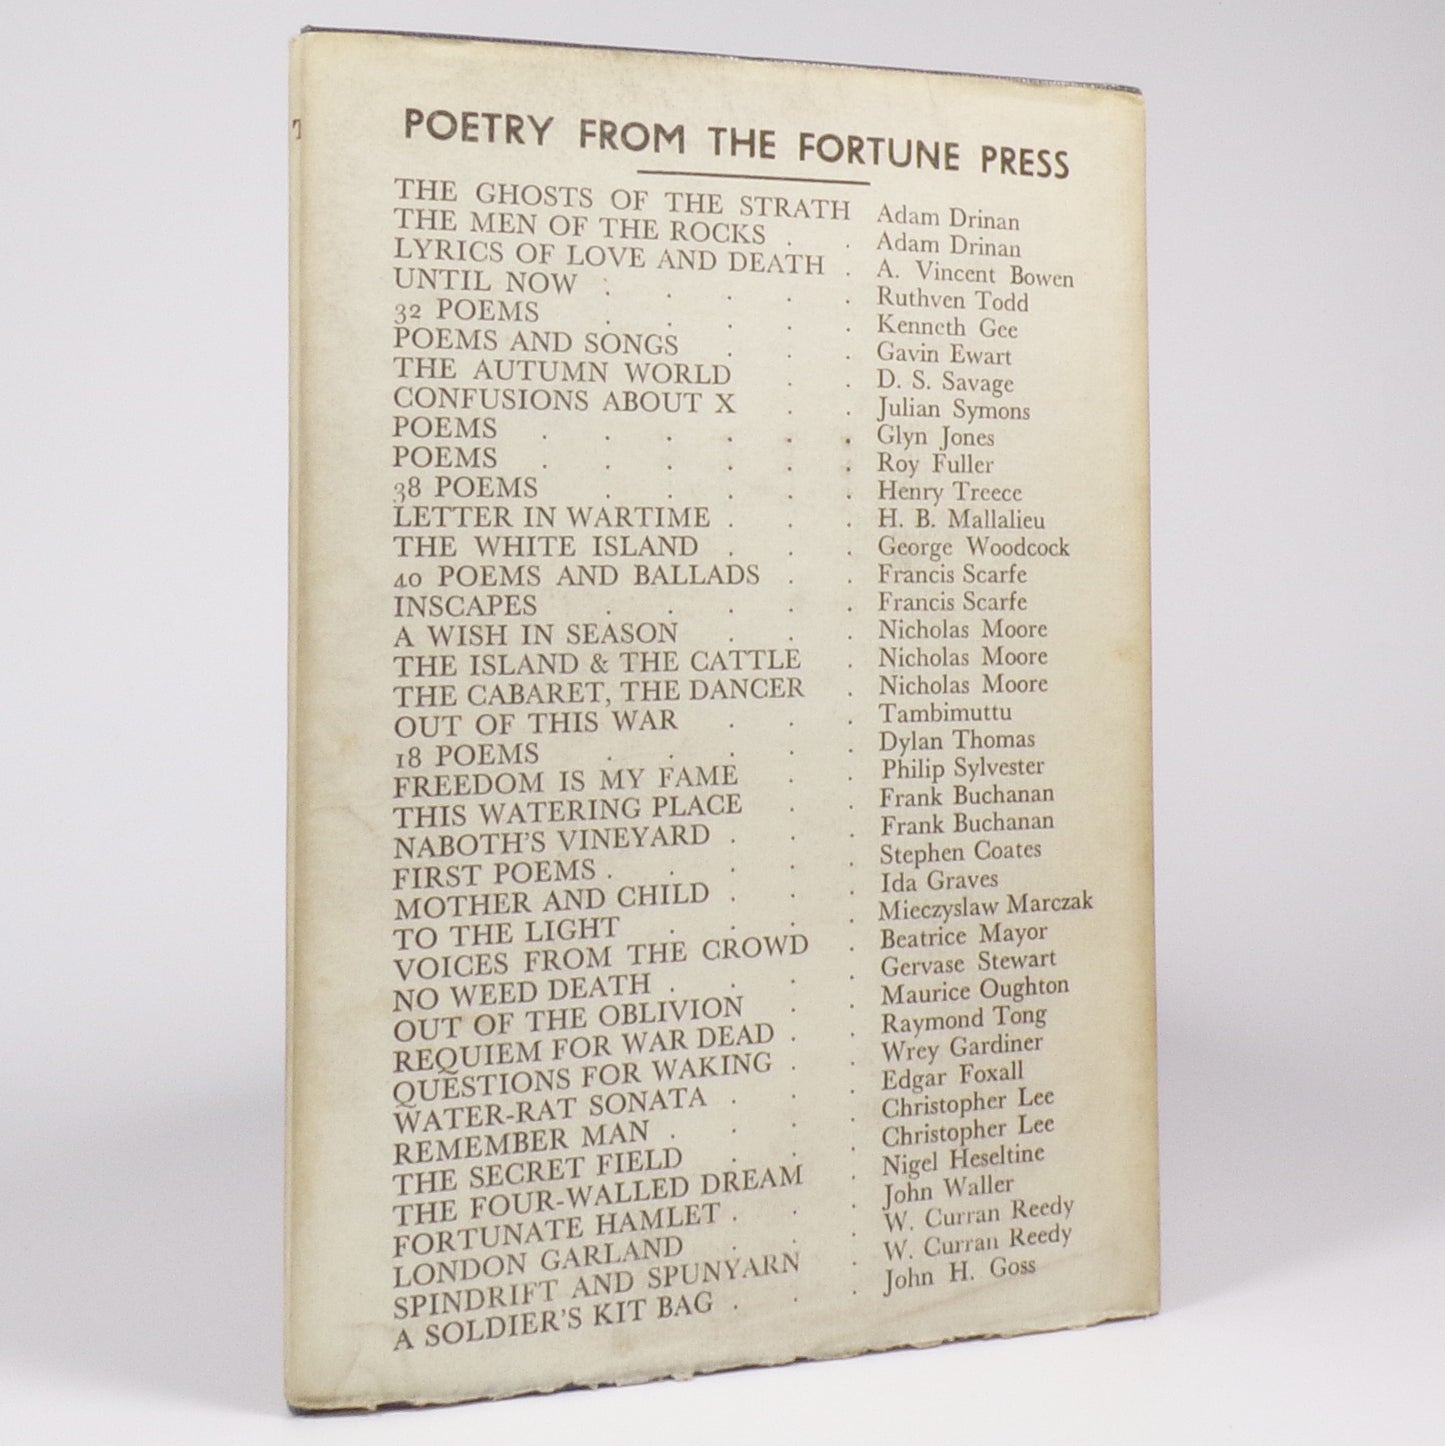 POETRY FROM THE FORTUNE PRESS
THE GHOSTS OF THE STRATH Adam Drinan
THE MEN OF THE ROCKS . . Adam Drinan
LYRICS OF LOVE AND DEATH . A. Vincent Bowen
UNTIL NOW . . . . . Ruthven Todd
32 POEMS . . . . . Kenneth Gee
POEMS AND SONGS . . . Gavin Ewart
THE AUTUMN WORLD . . D. S. Savage
CONFUSIONS ABOUT X . . Julian Symons
POEMS . . . . . . Glyn Jones
POEMS . . . . . . Roy Fuller
38 POEMS . . . . . Henry Treece
LETTER IN WARTIME . . . H. B. Mallalieu
THE WHITE ISLAND . . . George Woodcock
40 POEMS AND BALLADS . . Francis Scarfe
INSCAPES . . . . . Francis Scarfe
A WISH IN SEASON . . . Nicholas Moore
THE ISLAND & THE CATTLE . Nicholas Moore
THE CABARET, THE DANCER . Nicholas Moore
OUT OF THIS WAR . . . Tambimuttu
18 POEMS . . . . . Dylan Thomas
FREEDOM IS MY FAME . . Philip Sylvester
THIS WATERING PLACE . . Frank Buchanan
NABOTH'S VINEYARD . . . Frank Buchanan
FIRST POEMS . . . . . Stephen Coates
MOTHER AND CHILD . . . Ida Graves
TO THE LIGHT . . . . Mieczyslaw Marczak
VOICES FROM THE CROWD . Beatrice Mayor
NO WEED DEATH . . . . Gervase Stewart
OUT OF THE OBLIVION . . Maurice Oughton
REQUIEM FOR WAR DEAD . . Raymond Tong
QUESTIONS FOR WAKING . . Wrey Gardiner
WATER-RAT SONATA . . . Edgar Foxall
REMEMBER MAN . . . . Christopher Lee
THE SECRET FIELD . . . Christopher Lee
THE FOUR-WALLED DREAM . Nigel Heseltine
FORTUNATE HAMLET . . . John Waller
LONDON GARLAND . . . W. Curran Reedy
SPINDRIFT AND SPUNYARN . W. Curran Reedy
A SOLDIER'S KIT BAG . . . John H. Goss